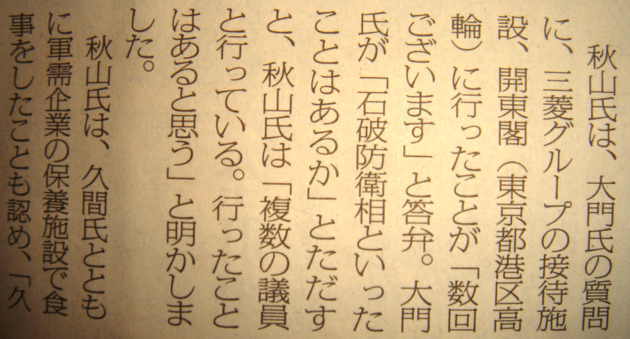 秋山氏は、大門氏の質問
に、三菱グループの接待施
設、開東閣（東京都港区高
輪）に行ったことが「数回
ございます」と答弁。大門
氏が「石破防衛相といった
ことはあるか」とただす
と、秋山氏は「複数の議員
と行っている。行ったこと
はあると思う」と明かしま
した。
秋山氏は、久間氏ととも
に軍需企業の保養施設で食
事をしたことも認め、「久